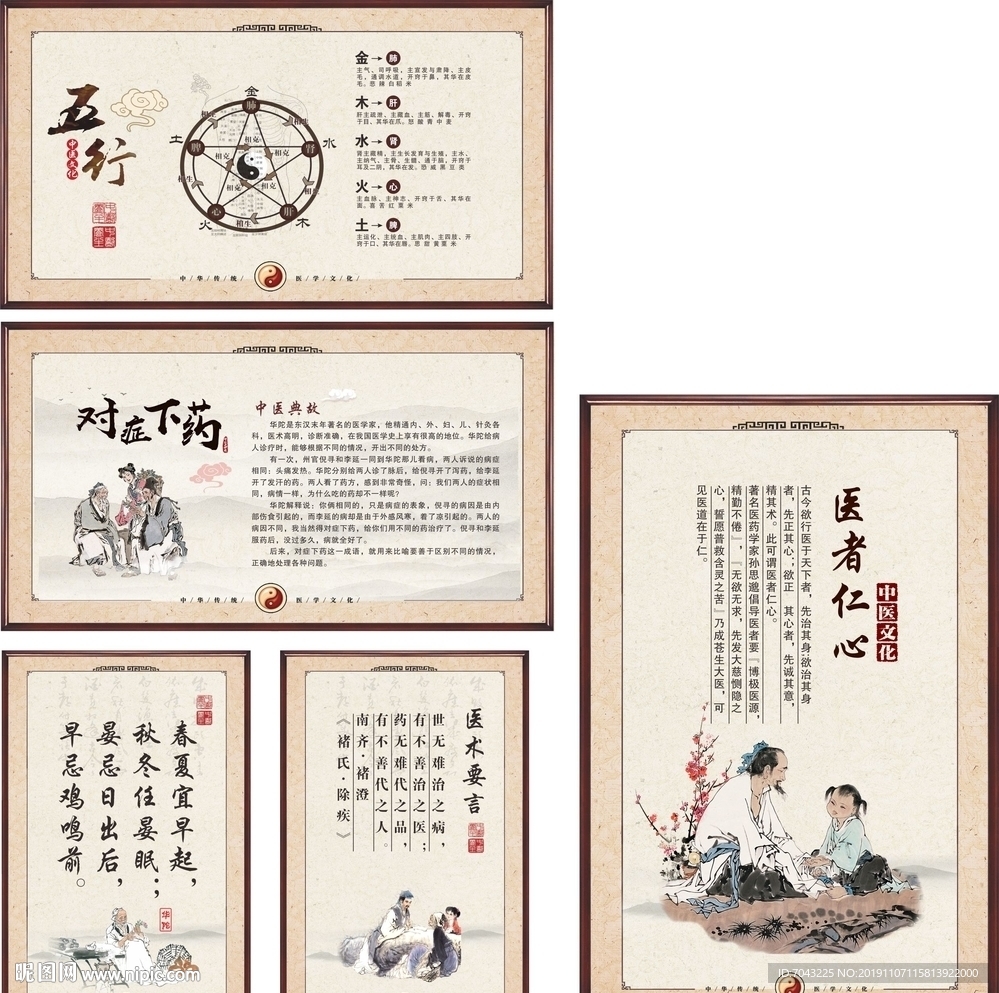 五行
中医文化
金
土
水
火
木
肺
脾
肾
心
肝
相生
相克
相克
相克
相克
相克
相生
相生
相生
相生
金→肺
主气、司呼吸，主宣发与肃降，主皮
毛，通调水道，开窍于鼻，其华在皮
毛。悲 辣 白 稻 米
木→肝
肝主疏泄、主藏血、主筋、解毒、开窍
于目、其华在爪。怒 酸 青 中 麦
水→肾
肾主藏精，主生长发育与生殖，主水、
主纳气、主骨、生髓、通于脑，开窍于
耳及二阴，其华在发。恐 咸 黑 至 类
火→心
主血脉、主神志、开窍于舌、其华在
面。喜 苦 红 粟 米
土→脾
主运化、主统血、主肌肉、主四肢。开
窍于口、其华在唇。思 甜 黄 粟 米
中/华/传/统/
医/学/文/化/
对症下药
中医典故
华陀是东汉末年著名的医学家，他精通内、外、妇、儿、针灸各
科，医术高明，诊断准确，在我国医学史上享有很高的地位。华陀给病
人诊疗时，能够根据不同的情况，开出不同的处方。
有一次，州官倪寻和李延一同到华陀那儿看病，两人诉说的病症
相同：头痛发热。华陀分别给两人诊了脉后，给倪寻开了泻药，给李延
开了发汗的药。两人看了药方，感到非常奇怪，问：我们两人的症状相
同，病情一样，为什么吃的药却不一样呢？
华陀解释说：你俩相同的，只是病症的表象，倪寻的病因是由内
部伤食引起的，而李延的病却是由于外感风寒，着了凉引起的。两人的
病因不同，我当然得对症下药，给你们用不同的药治疗了。倪寻和李延
服药后，没过多久，病就全好了。
后来，对症下药这一成语，就用来比喻要善于区别不同的情况，
正确地处理各种问题。
中/华/传/统/
医/学/文/化/
春夏宜早起，
秋冬任晏眠；
晏忌日出后，
早忌鸡鸣前。
华陀
医术要言
世无难治之病，
有不善治之医；
药无难代之品，
有不善代之人。
南齐·褚澄
《褚氏·除疾》
医者仁心
中医文化
古今欲行医于天下者，先治其身；欲治其身
者，先正其心；欲正 其心者，先诚其意，
精其术。此可谓医者仁心。
著名医药学家孙思邈倡导医者要『博极医源，
精勤不倦』，『无欲无求，先发大慈恻隐之
心，誓愿普救含灵之苦』乃成苍生大医，可
见医道在于仁。
中/华/传/统/
医/学/文/化/
昵图网 www.nipic.com
ID:7043225 NO:20191107115813922000